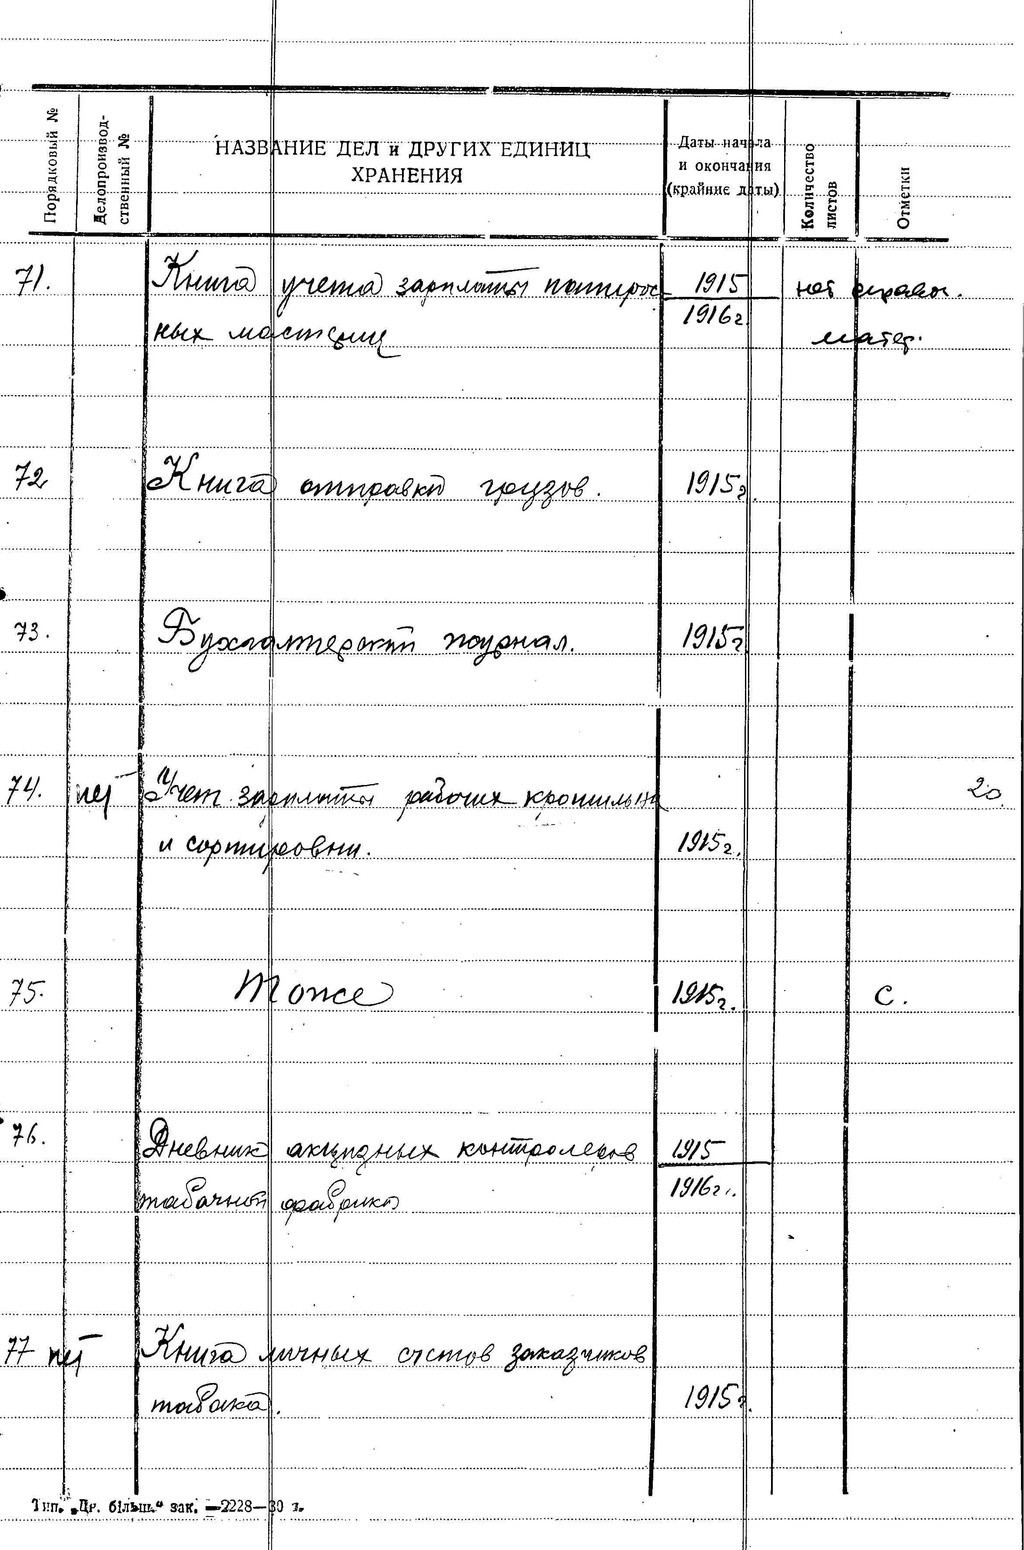 Порядковый №
Делопроизвод-
ственный №
НАЗВАНИЕ ДЕЛ и ДРУГИХ ЕДИНИЦ
ХРАНЕНИЯ
Даты начала
и окончания
(крайние даты)
Количество
листов
Отметки
71. Книга учета зарплаты папирос- 1915 нет
ных мастериц 1916г. матер.
72. Книга отправки грузов. 1915г.
73. Бухгалтерский журнал. 1915г.
74. нет Учет зарплаты рабочих крошильни 20.
и сортировки. 1915г.
75. Тоже 1915г. С.
76. Дневник акцизных контролеров 1915
табачной фабрики 1916г.
77 нет Книга личных счетов заказчиков
табака. 1915г.
Тип. „Др. більш.“ зак. —2228—30 г.